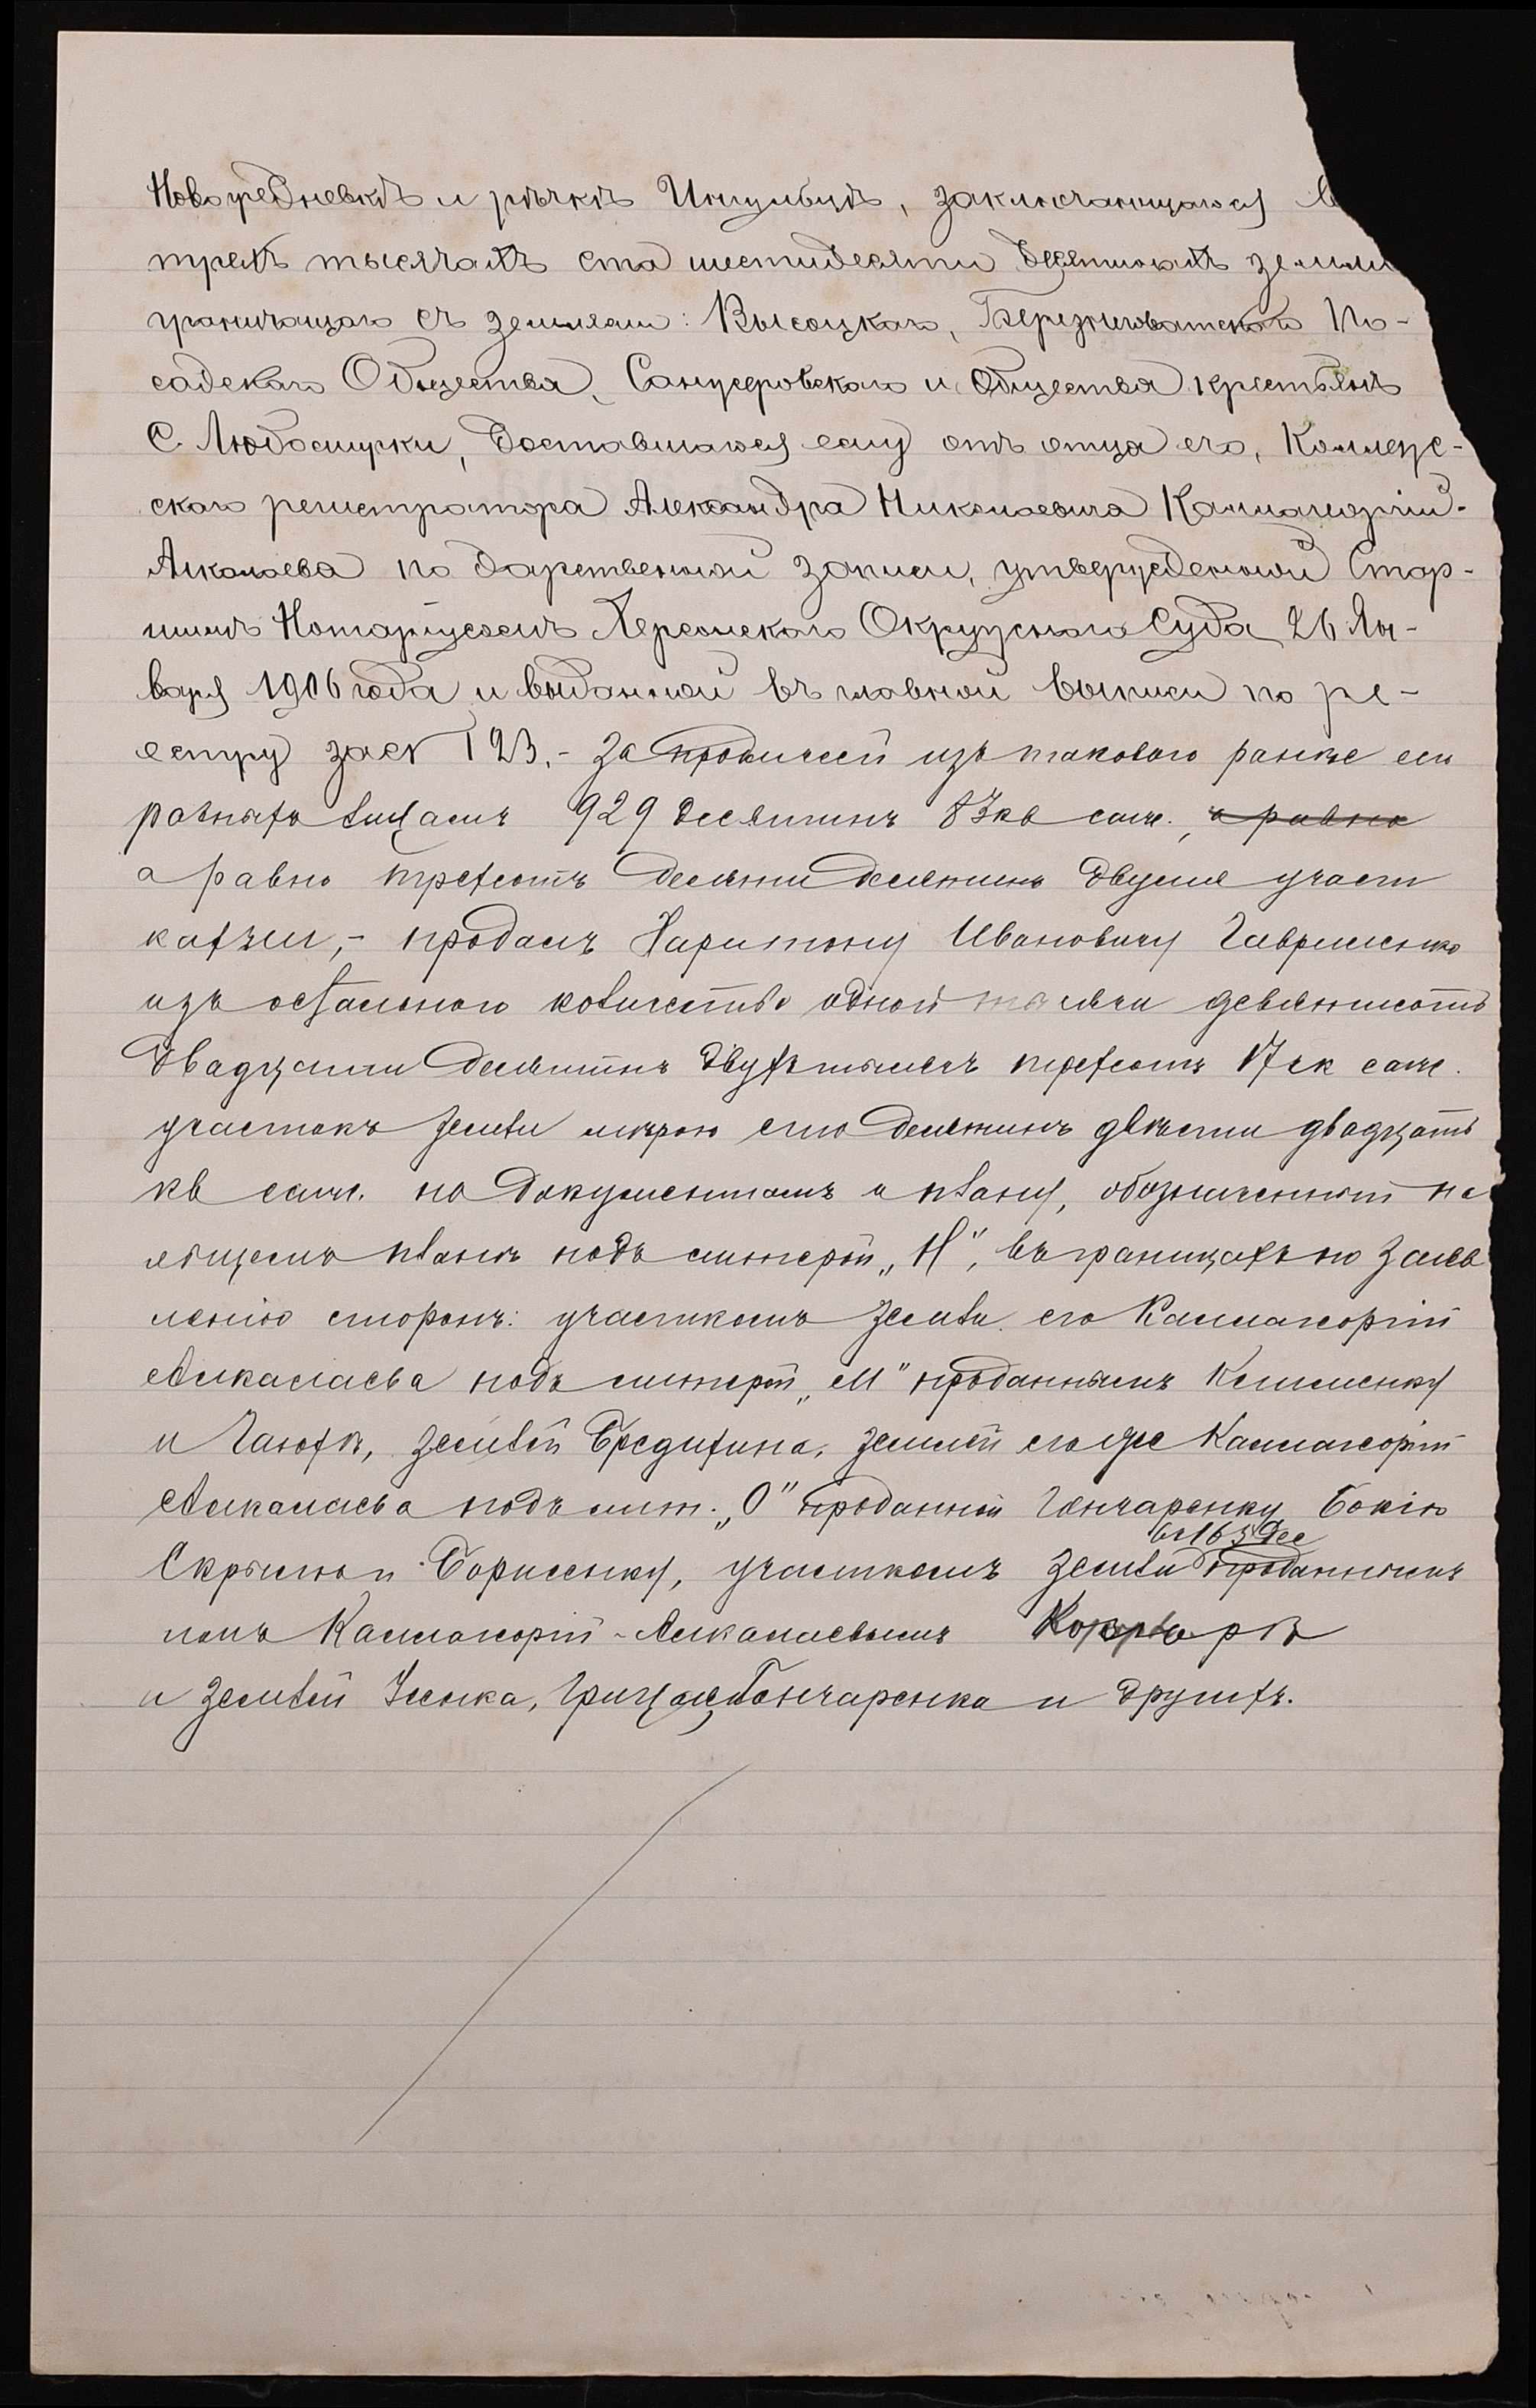 Новоредневкѣ и рѣчкѣ Ингульцѣ, заключающагося въ
трехъ тысячахъ ста шестидесяти десятинахъ земли
граничащаго съ землями: Высоцкаго, Березнеговатскаго По-
садскаго Общества, Санжеровскаго и Общества крестьянъ
С. Любомирки, доставшагося ему отъ отца его, Коллежс-
скаго регистратора Александра Николаевича Каллагеоргій-
Алкалаева по дарственной записи, утвержденной Стар-
шимъ Нотаріусомъ Херсонскаго Окружнаго Суда 26 Ян-
варя 1906 года и выданной въ главной выписи по ре-
естру за № 123.- За продажей изъ таковаго ранѣе имъ
разнымъ лицамъ 929 десятинъ 83 кв саж., а равно
а равно трехсотъ десяти десятинъ двумя участ
ками,- продалъ Харитону Ивановичу Гавриленко
изъ остального количества одной тысячи девятисотъ
двадцати десятинъ двухъ тысячъ трехсотъ 17 кв саж.
участокъ земли мѣрою сто десятинъ двѣсти двадцать
кв саж. по документамъ и плану, обозначенный на
общемъ планѣ подъ литерой „Н", въ границахъ по заяв
ленію сторонъ: участкомъ земли его Каллагеоргій
Алкалаева подъ литерой „М" проданнымъ Клименку
и Гаюхѣ, землей Бредихина, землей его же Каллагеоргій
Алкалаева подъ лит. „О" проданной Гончаренку Бокію
въ 163 дес
Скрылю и Борисенку, участкомъ земли проданнымъ
имъ Каллагеоргій-Алкалаевымъ
и землей Усенка, Грицая, Гончаренка и другихъ.